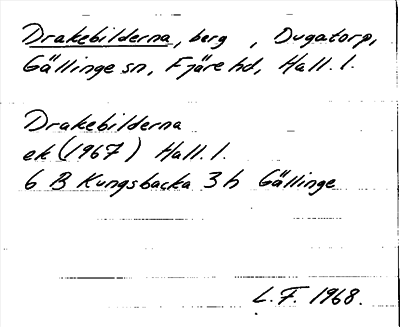 Drakebilderna, berg , Dugatorp,
Gällinge sn, Fjäre hd, Hall. l.
Drakebilderna
ek (1967) Hall. l.
6 B Kungsbacka 3 h Gällinge
L. F. 1968.